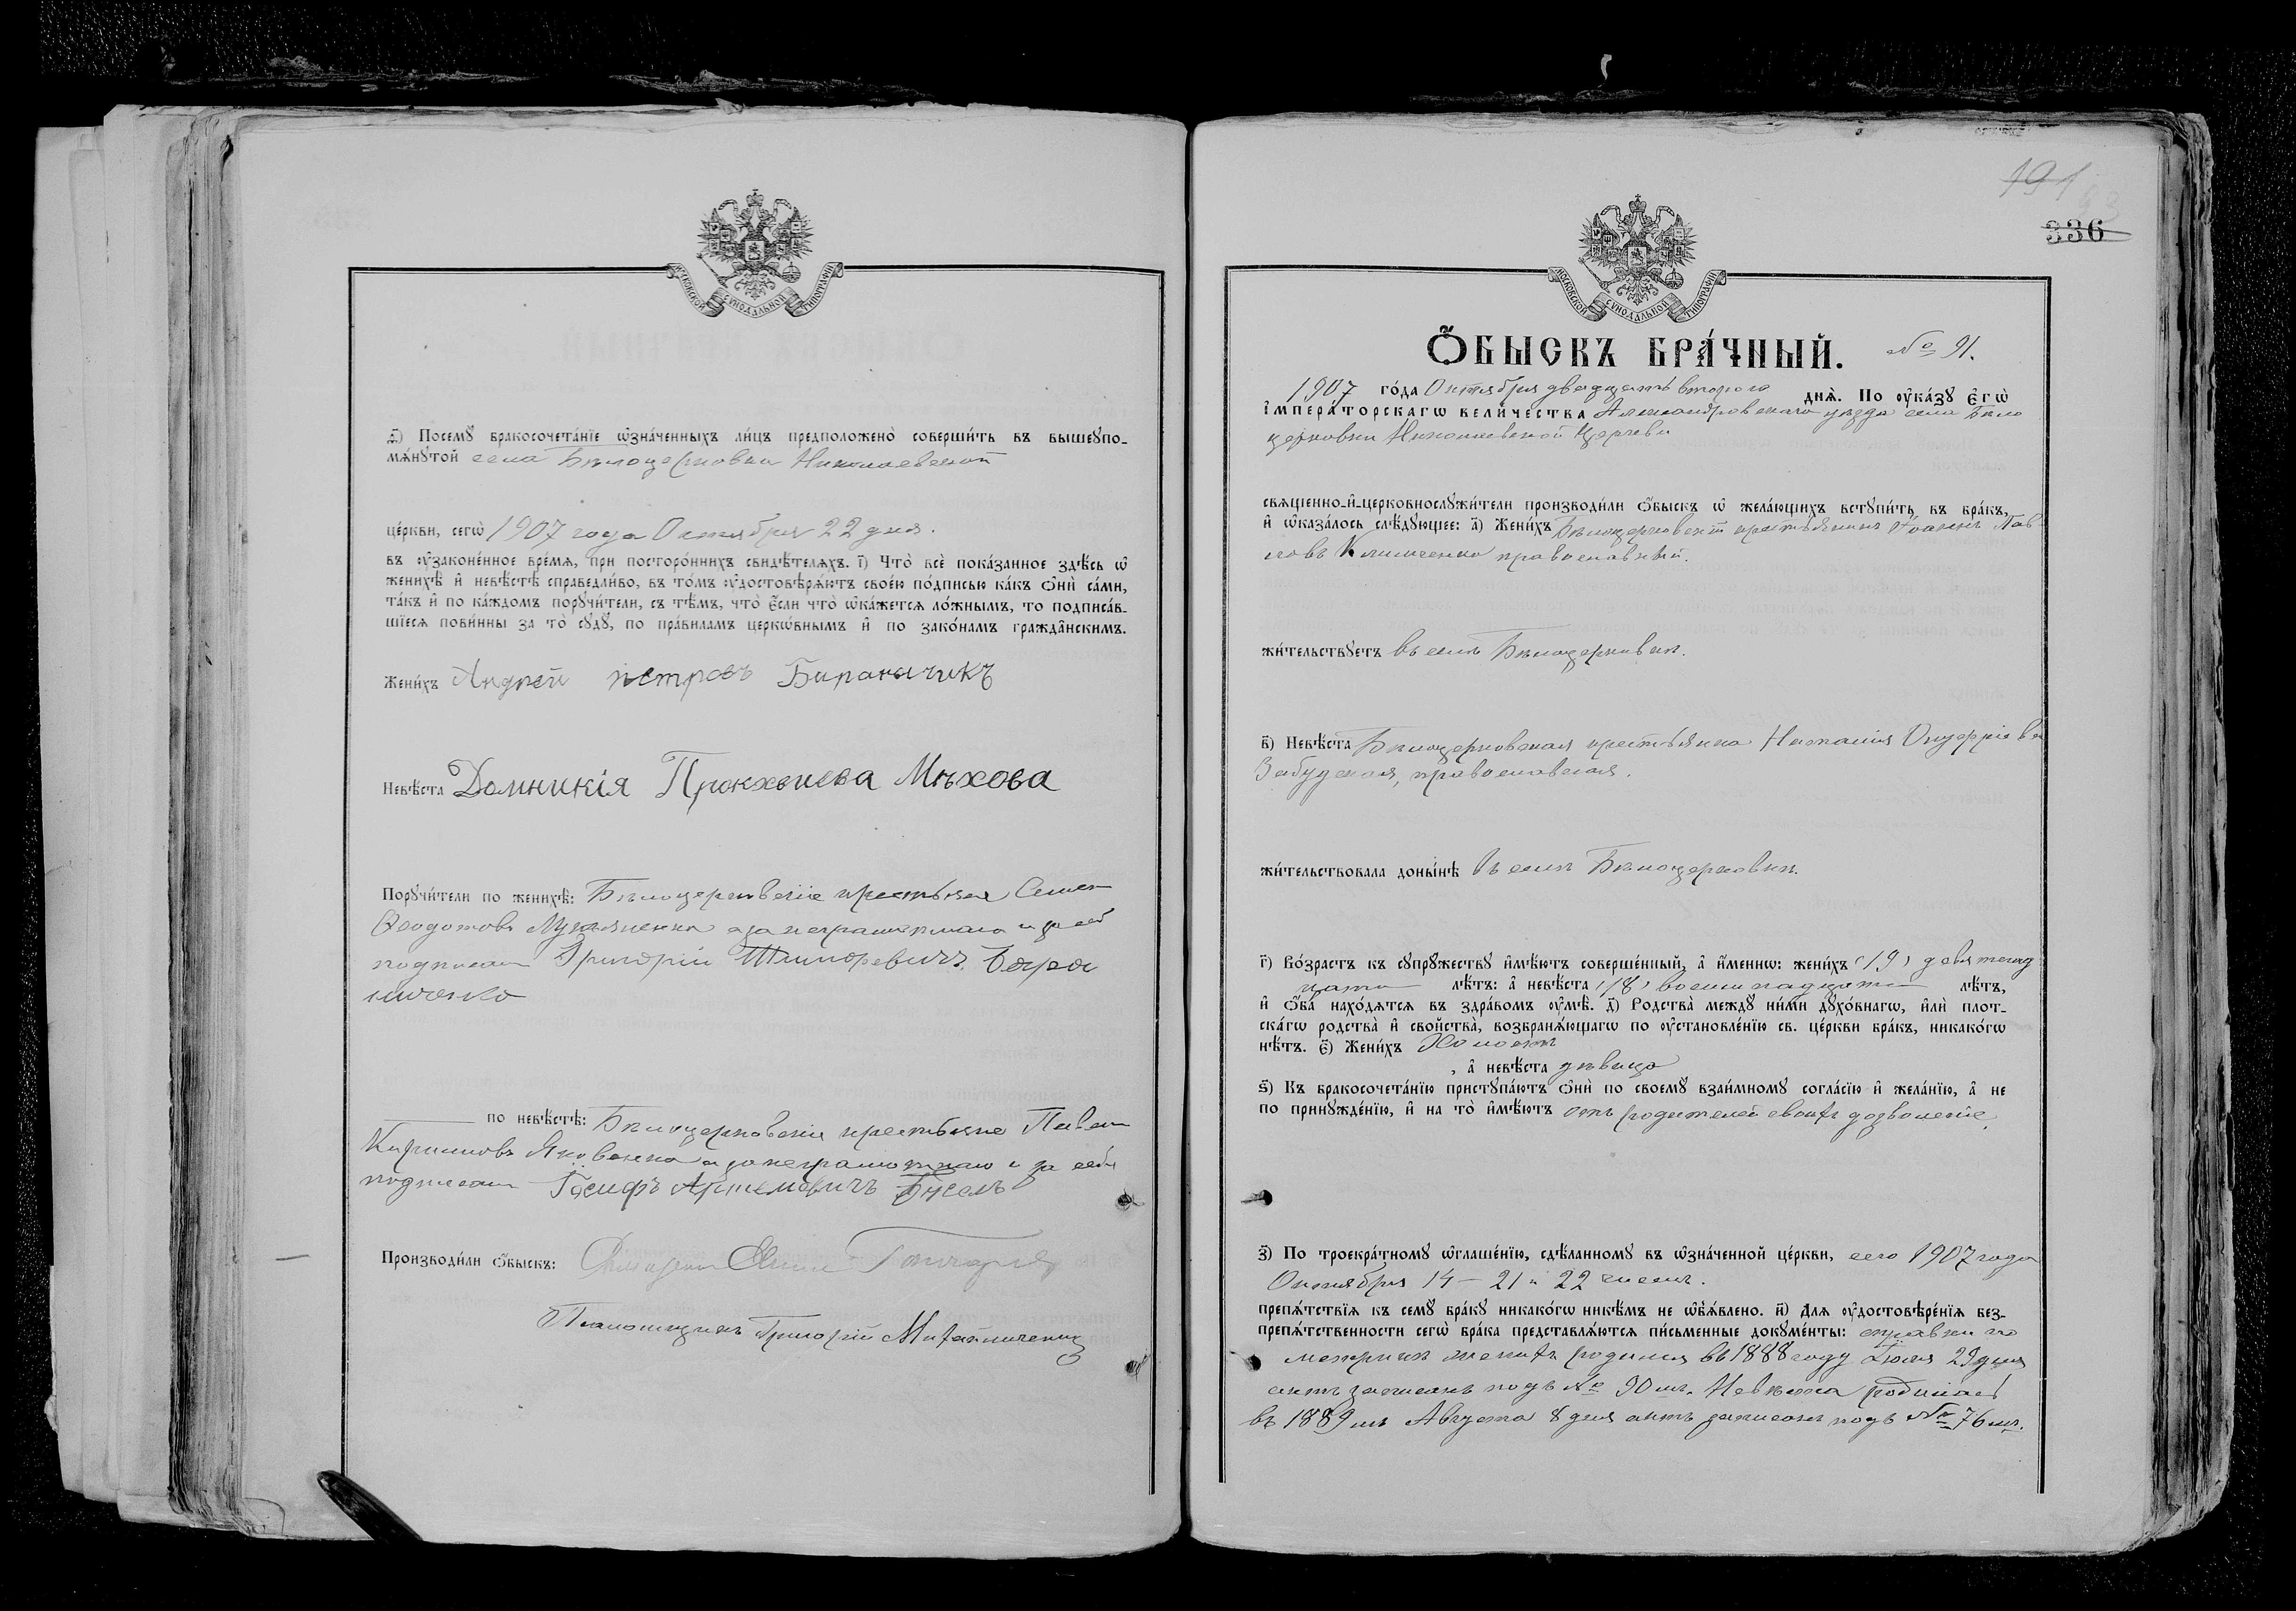 МОСКОВСКОЙ СѴНОДАЛЬНОЙ ТИПОГРАФІИ
ѳ҃) Посемꙋ̀ бракосочета́нїе ѡ҆зна́ченныхъ ли́цъ предположено̀ соверши́ть въ вышеꙋпо-
мѧ́нꙋтой села Бѣлоцерковки Николаевской
це́ркви, сегѡ̀ 1907 года Октября 22 дня.
въ ᲂу҆зако́ненное вре́мѧ, при посторо́ннихъ свидѣ́телѧхъ. і҃) Что̀ всѐ пока́занное здѣ́сь ѡ҆
женихѣ̀ и҆ невѣ́стѣ справедли́во, въ то́мъ ᲂу҆достовѣрѧ́ютъ свое́ю по́дписью ка́къ ѻ҆нѝ са́ми,
та́къ и҆ по ка́ждомъ порꙋчи́тели, съ тѣ́мъ, что̀ є҆́сли что̀ ѡ҆ка́жетсѧ ло́жнымъ, то подписа́в-
шїесѧ пови́нны за то̀ сꙋдꙋ̀, по пра́виламъ церкѡ́внымъ и҆ по зако́намъ гражда́нскимъ.
Жени́хъ Андрей петровъ
Невѣ́ста Домникія Мѣхова
Порꙋчи́тели по женихѣ̀: Бѣлоцерковскіе крестьяне Семен
Ѳеодотовъ а за неграмотнаго и за себ
подписал Григорій
по невѣ́стѣ: Бѣлоцерковскіе крестьяне Павел
Яковенко а за неграмотнаго и за себя
подписал Іосифъ Артемовичъ
Производи́ли ѻ҆́быскъ: Священникъ
Псаломщикъ Григорій
191
336
МОСКОВСКОЙ СѴНОДАЛЬНОЙ ТИПОГРАФІИ
Ѻ҆́БЫСКЪ БРА́ЧНЫЙ. № 91.
1907 го́да Октября двадцать второго днѧ̀. По ᲂу҆ка́зꙋ Є҆гѡ̀
І҆мпера́торскагѡ вели́чества Александровскаго уѣзда села Бѣло
церковки Николаевской Церкви
свѧще́нно-и҆-церковнослꙋжи́тели производи́ли ѻ҆́быскъ ѡ҆ жела́ющихъ встꙋпи́ть въ бра́къ,
и҆ ѡ҆каза́лось слѣ́дꙋющее: а҃) Жени́хъ Бѣлоцерковскій крестьянинъ Іоаннъ Пав-
ловъ Клименко православный.
жи́тельствꙋетъ въ селѣ Бѣлоцерковкѣ.
в҃) Невѣ́ста Бѣлоцерковская крестьянка Наталія Онуфріева
Забудская, православная.
жи́тельствовала доны́нѣ въ селѣ Бѣлоцерковкѣ.
г҃) Во́зрастъ къ сꙋпрꙋ́жествꙋ и҆мѣ́ютъ соверше́нный, а҆ и҆́меннѡ: жени́хъ (19) девятнад
цати лѣ́тъ: а҆ невѣ́ста (18) восемнадцати лѣ́тъ,
и҆ ѻ҆́ба нахо́дѧтсѧ въ здра́вомъ ᲂу҆мѣ̀. д҃) Родства̀ междꙋ̀ ни́ми дꙋхо́внагѡ, и҆лѝ плот-
ска́гѡ родства̀ и҆ сво́йства, возбранѧ́ющагѡ по ᲂу҆становле́нїю св. це́ркви бра́къ, никако́гѡ
нѣ́тъ. є҃) Жени́хъ Холостъ
, а҆ невѣ́ста дѣвица
ѕ҃) Къ бракосочета́нїю пристꙋпа́ютъ ѻ҆нѝ по своемꙋ̀ взаи́мномꙋ согла́сїю и҆ жела́нїю, а҆ не
по принꙋжде́нїю, и҆ на то̀ и҆мѣ́ютъ отъ родителей своихъ дозволеніе.
з҃) По троекра́тномꙋ ѡ҆глаше́нїю, сдѣ́ланномꙋ въ ѡ҆зна́ченной це́ркви, сего 1907 года
Октября 14 – 21 и 22 чиселъ.
препѧ́тствїѧ къ семꙋ̀ бра́кꙋ никако́гѡ никѣ́мъ не ѡ҆б̾ѧ́влено. и҃) Длѧ ᲂу҆достовѣре́нїѧ без-
препѧ́тственности сегѡ̀ бра́ка представлѧ́ютсѧ пи́сьменные докꙋме́нты: справки по
метрикѣ женихъ родился въ 1888 году Іюля 29 дня
актъ записанъ подъ № 90 мъ. Невѣста родилась
въ 1889 мъ Августа 8 дня актъ записанъ подъ № 76 мъ.